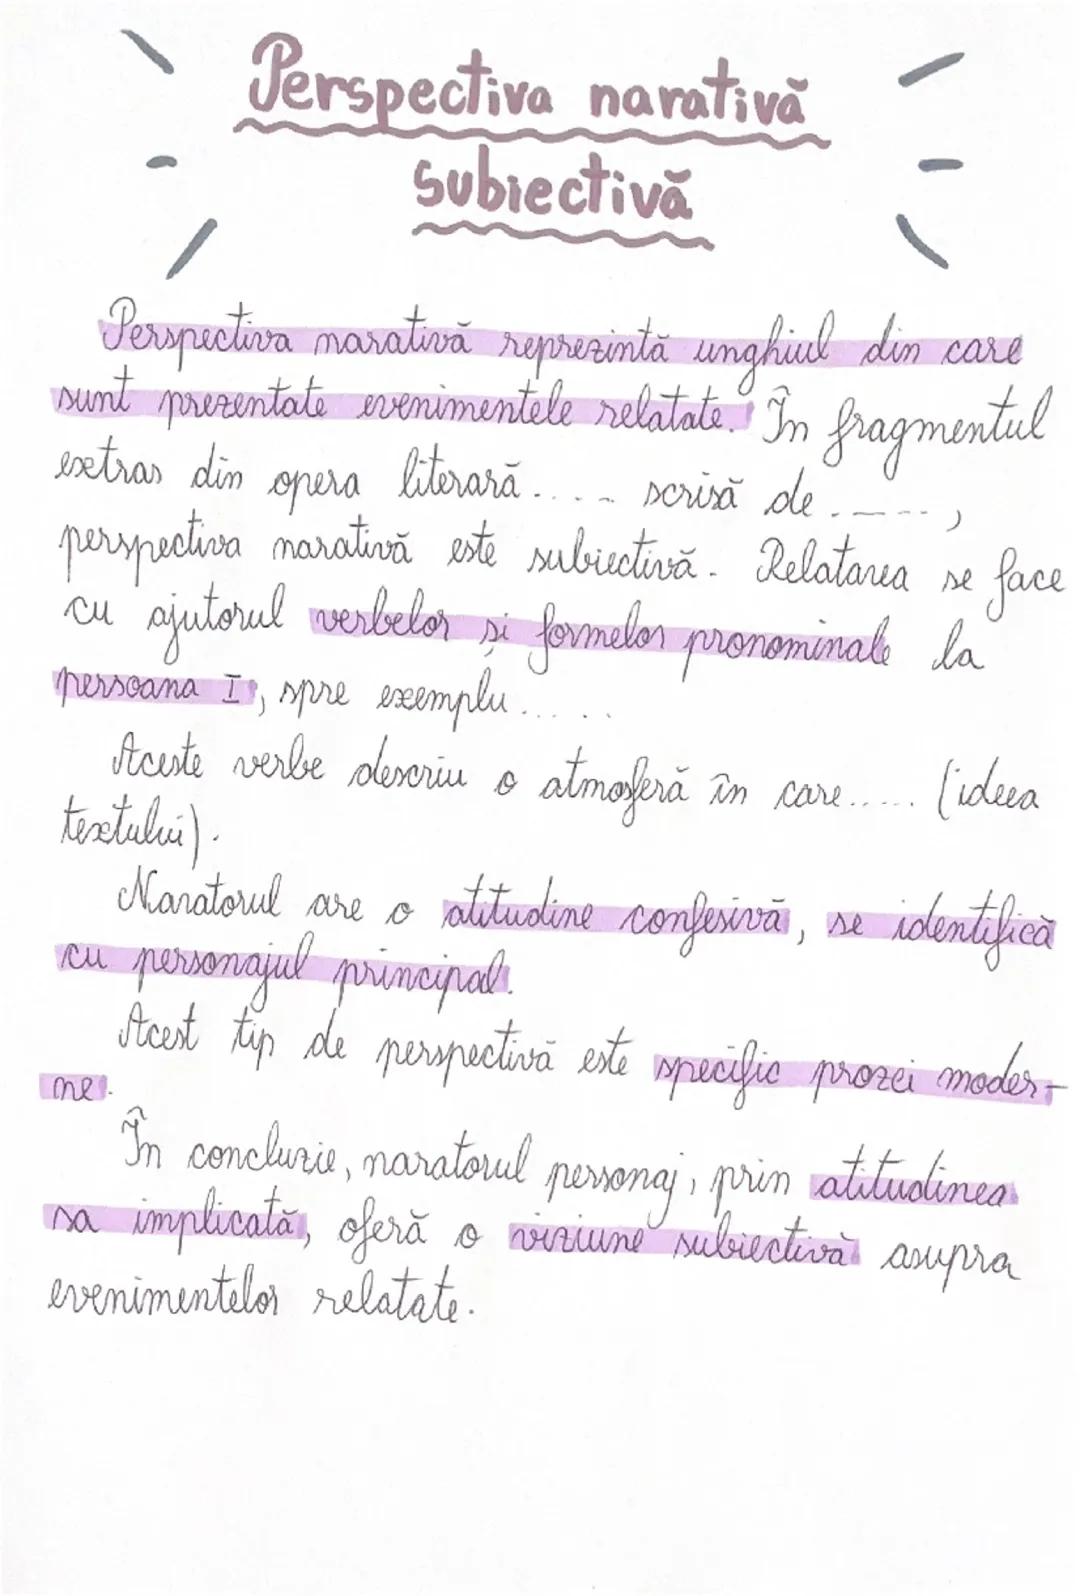 Perspectiva narativă
subiectivă
Perspectiva narativă reprezintă unghiul din care
sunt prezentate evenimentele relatate. În fragmentul
extras din opera literară..... scrisă de ......,
perspectiva narativă este subiectivă. Relatarea se face
cu ajutorul verbelor și formelor pronominale la
persoana I, spre exemplu.....
Aceste verbe descriu o atmosferă în care..... (ideea
textului).
Naratorul are o atitudine confesivă, se identifică
cu personajul principal.
Acest tip de perspectivă este specific prozei moder-
ne.
În concluzie, naratorul personaj, prin atitudinea
sa implicată, oferă o viziune subiectivă asupra
evenimentelor relatate.